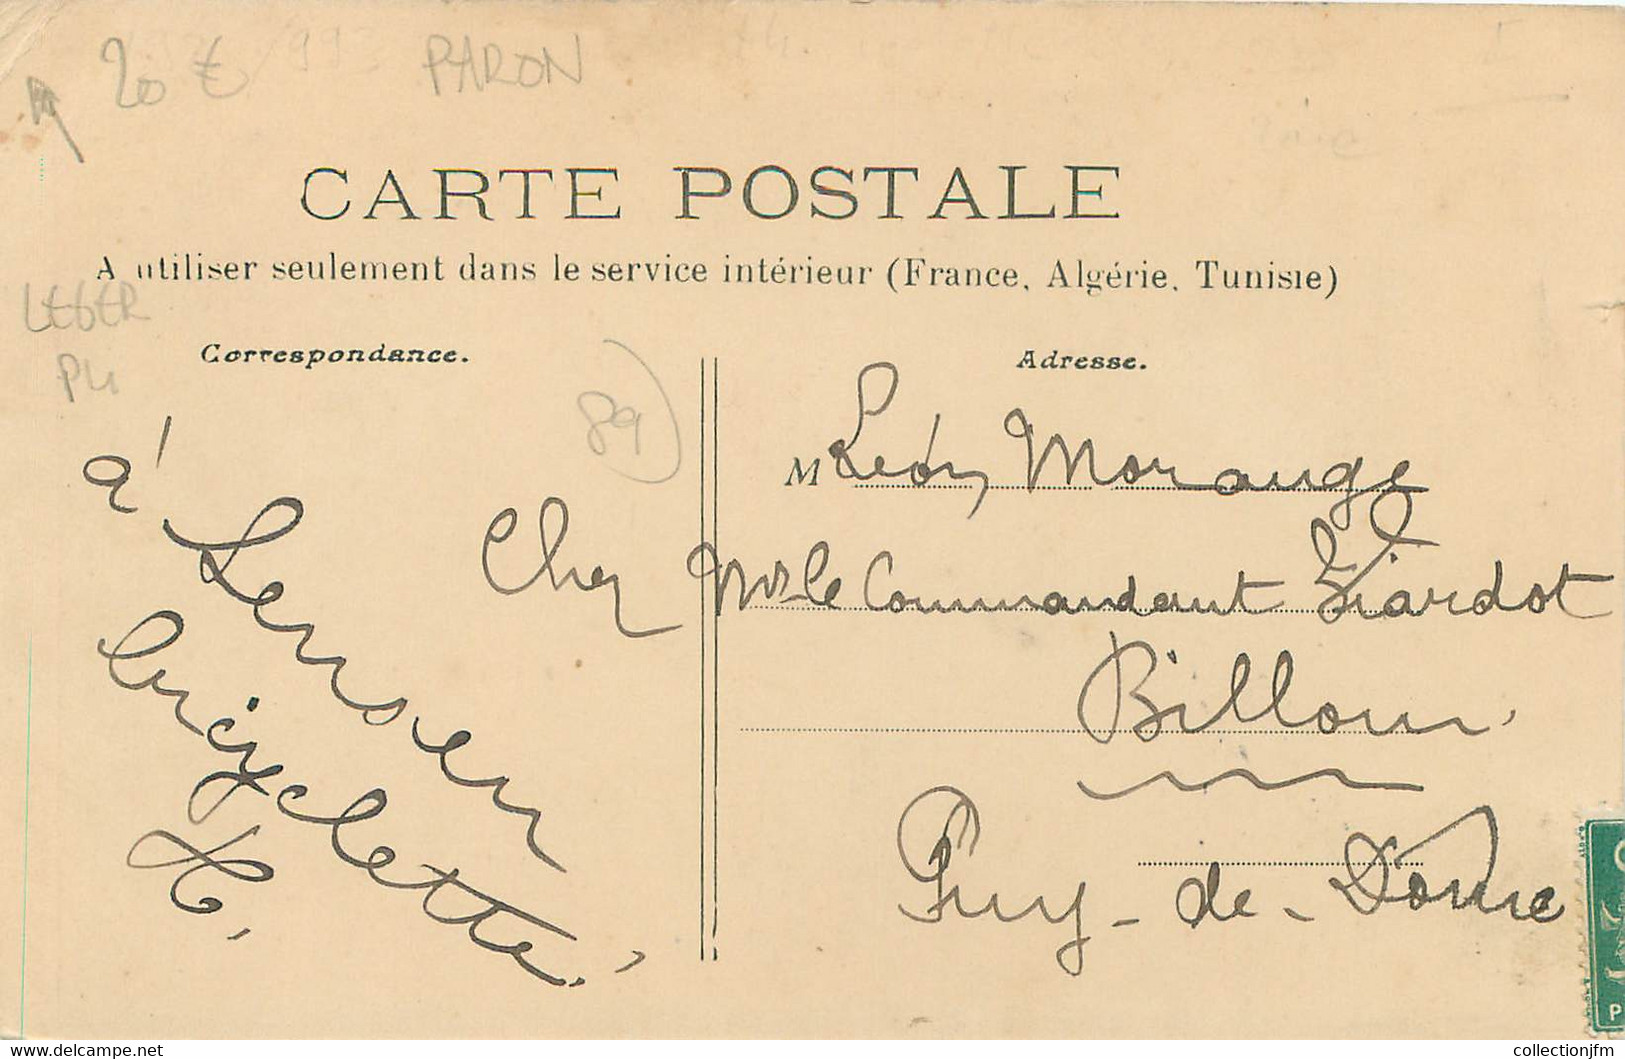 20 €
PARON
CARTE POSTALE
A utiliser seulement dans le service intérieur (France, Algérie, Tunisie)
LEGER
P4
Correspondance.
Adresse.
89
à
bicyclette.
M Léon Morange
Chez Mr le Commandant Liardot
Billom.
Puy-de-Dôme
P
collectionjfm